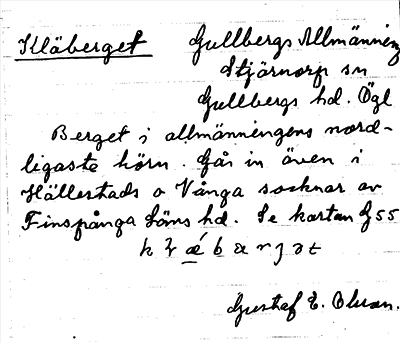 Kläberget Gullbergs Allmänning
Stjärnorp sn
Gullbergs hd. Ögl
Berget i allmänningens nord-
ligaste hörn. Går in även i
Hällestads o Vånga socknar av
Finspånga Läns hd. Se kartan
Gustaf E.